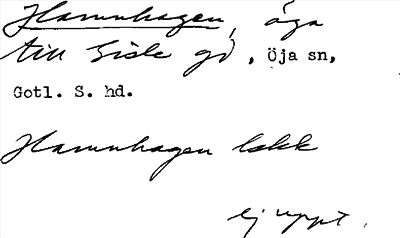 Hamnhagen, äga
till Gisle gd, Öja sn,
Gotl. S. hd.
Hamnhagen lskk
ej uppt.